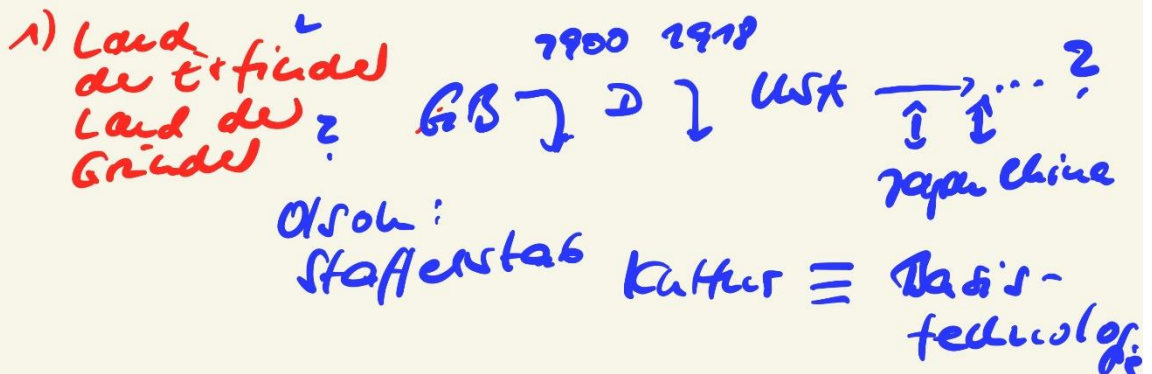 1) Land
der Erfinder
Land der
Gründer ?
1900 1918
GB D USA ... ?
Japan China
Olson:
Staffelstab
Kultur ≡ Basis-
technologie